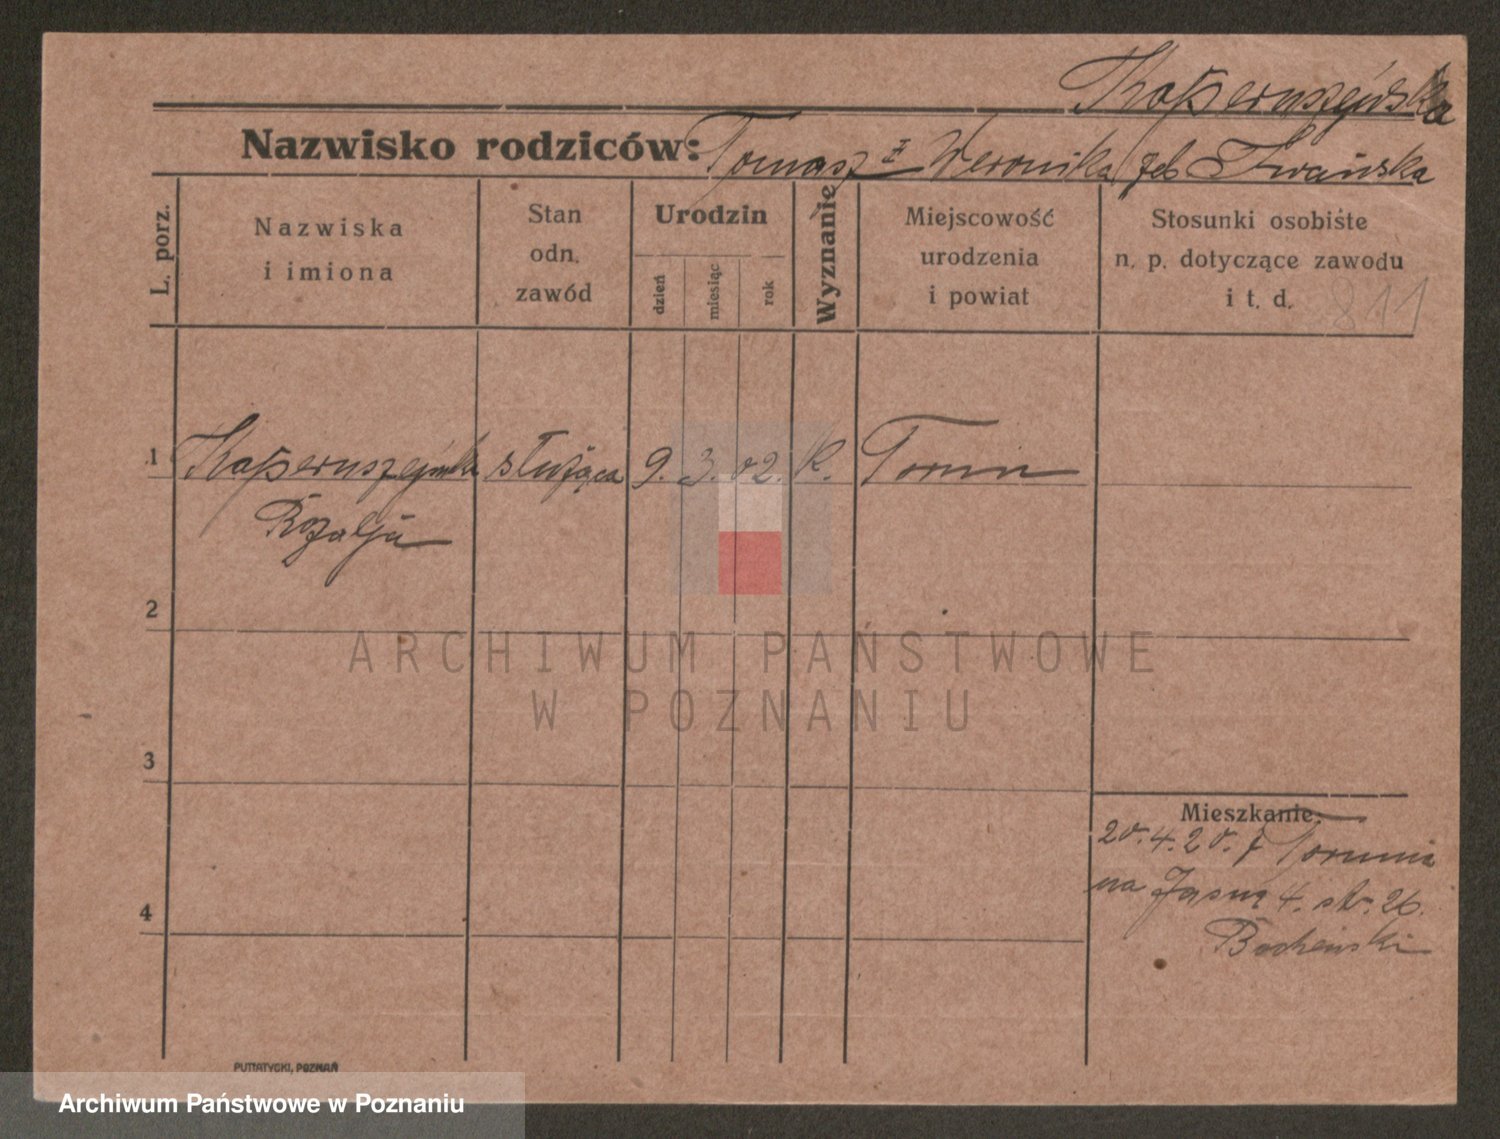 Nazwisko rodziców: Tomasz i Weronika
L. porz.
Nazwiska
i imiona
Stan
odn.
zawód
Urodzin
dzień
miesiąc
rok
Wyznanie
Miejscowość
urodzenia
i powiat
Stosunki osobiste
n. p. dotyczące zawodu
i t. d.
811
1 służąca 9. 3. 02. K. Toruń
Rozalja
2
3
4
Mieszkanie:
20.4.20. z Torunia
na Jasną 4. str. 26.
PUTIATYCKI, POZNAŃ
ARCHIWUM PAŃSTWOWE
W POZNANIU
Archiwum Państwowe w Poznaniu